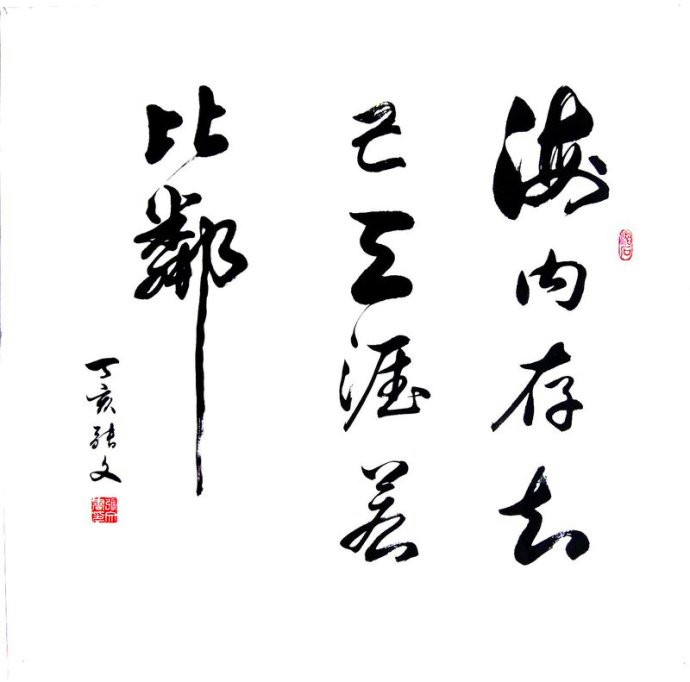 海内存知
己天涯若
比鄰
丁亥張文